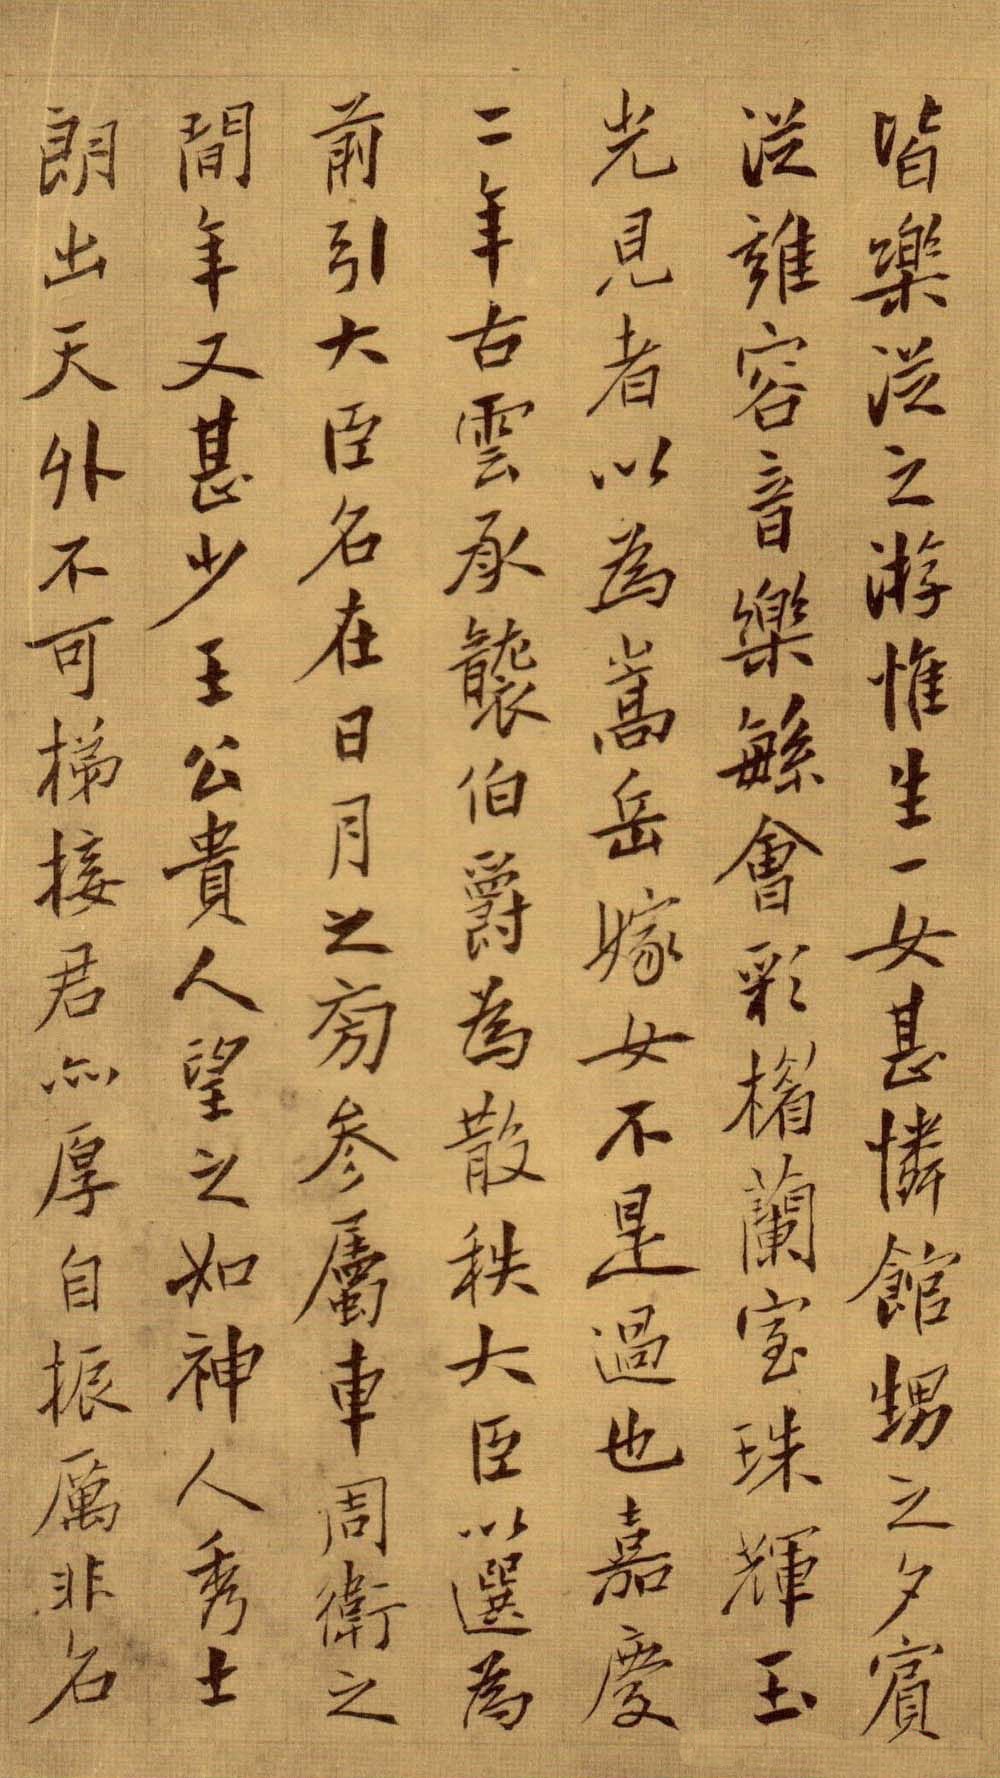 皆樂從之游惟生一女甚憐館甥之夕賓
從雍容音樂繁會彩楣蘭室珠輝玉
光見者以為嵩岳嫁女不是過也嘉慶
二年古雲承襲伯爵為散秩大臣以選為
前引大臣名在日月之旁參屬車周衛之
間年又甚少王公貴人望之如神人秀士
朗出天外不可梯接君亦厚自振厲非名